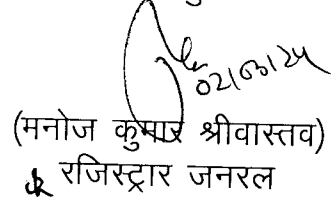 02/03/24
(मनोज कुमार श्रीवास्तव)
रजिस्ट्रार जनरल